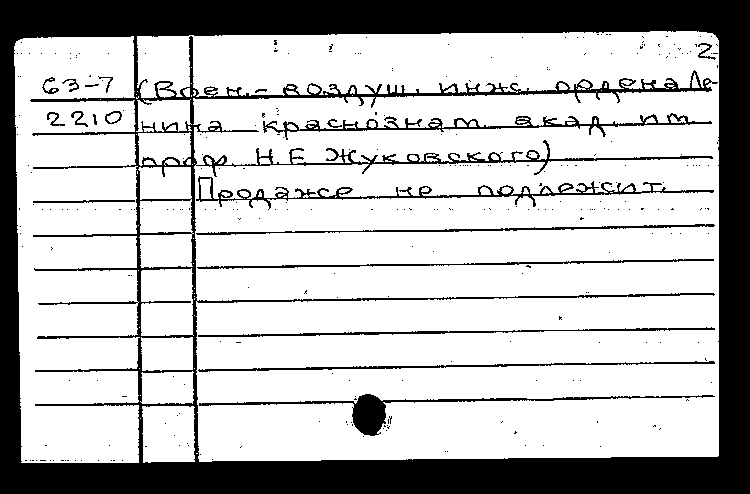 2
63-7 (Воен.- воздуш. инж. ордена Ле-
2210 нина краснознам. акад. им.
проф. Н.Е. Жуковского)
Продаже не подлежит.